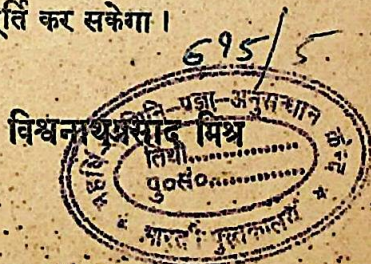 र्ति कर सकेगा।
695/5
विश्वनाथप्रसाद मिश्र
अनुसन्धान केन्द्र
तिथी..............
पु०सं०..............
* भारती पुस्तकालय *